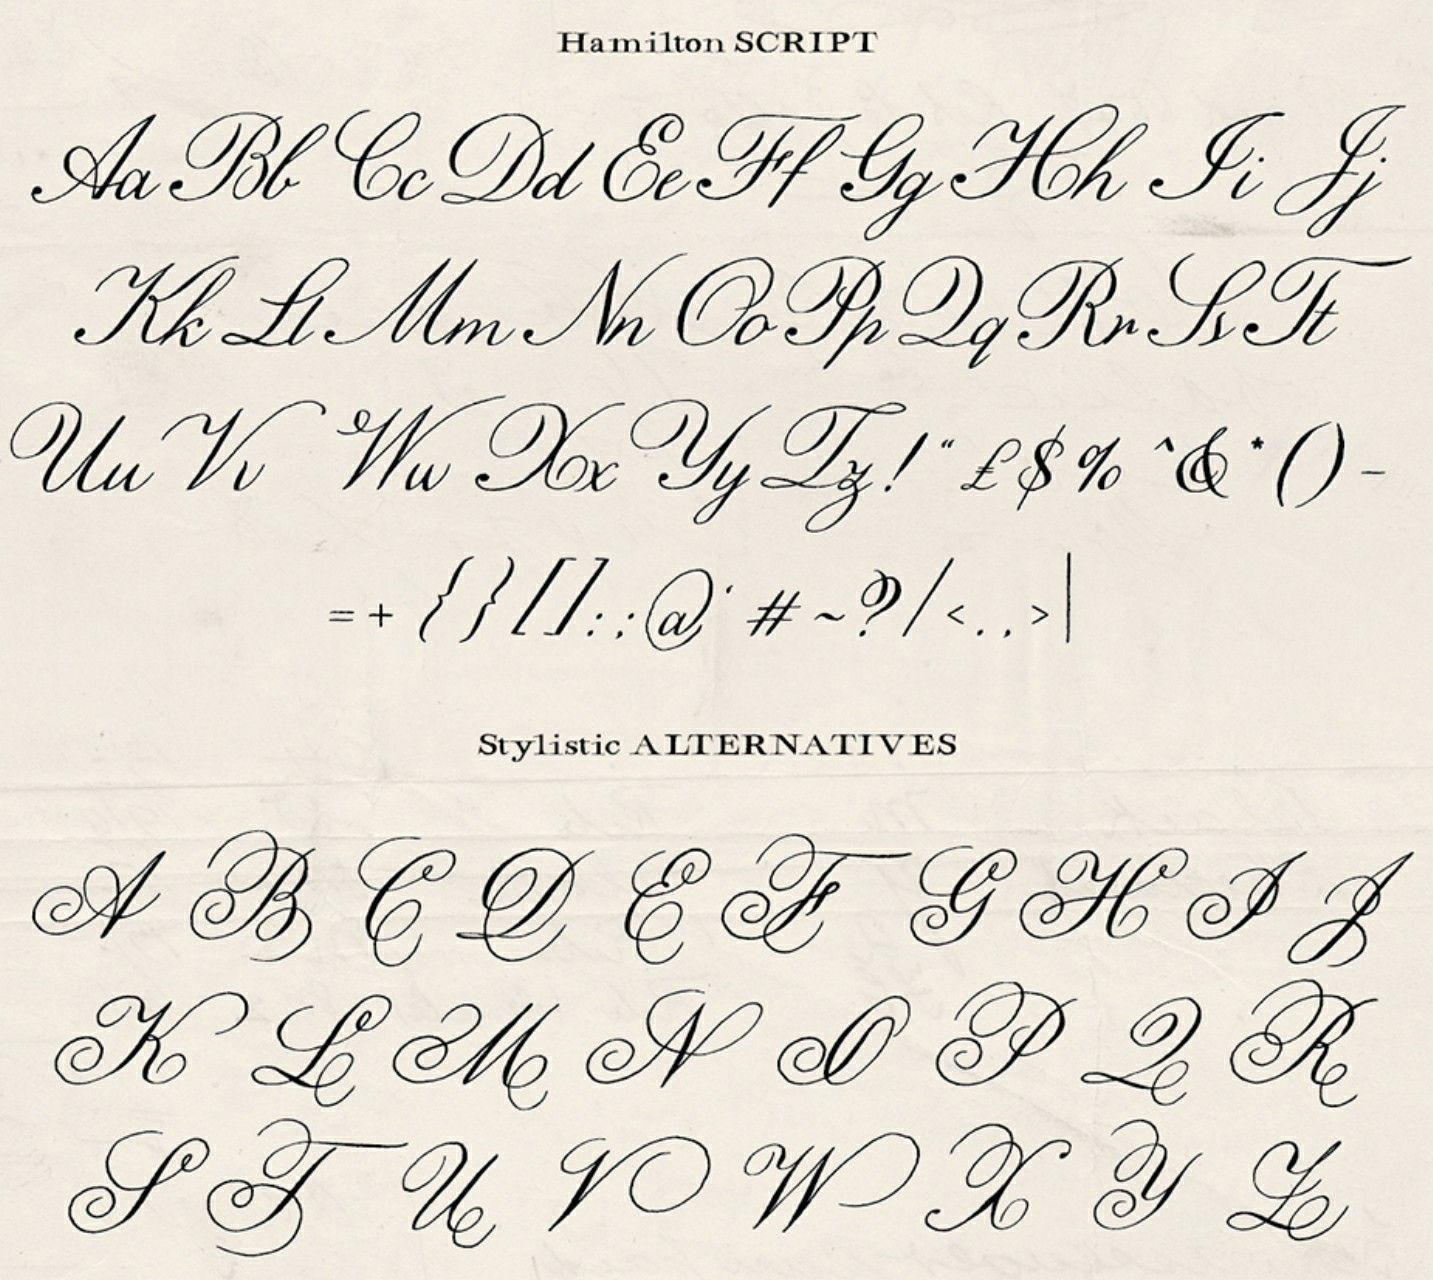 Hamilton SCRIPT
Aa Bb Cc Dd Ee Ff Gg Hh Ii Jj
Kk Ll Mm Nn Oo Pp Qq Rr Ss Tt
Uu Vv Ww Xx Yy Zz ! “ £ $ % ^ & * ( ) -
= + { } [ ] : ; @ ‘ # ~ ? / < . . > |
Stylistic ALTERNATIVES
A B C D E F G H I J
K L M N O P Q R
S T U V W X Y Z